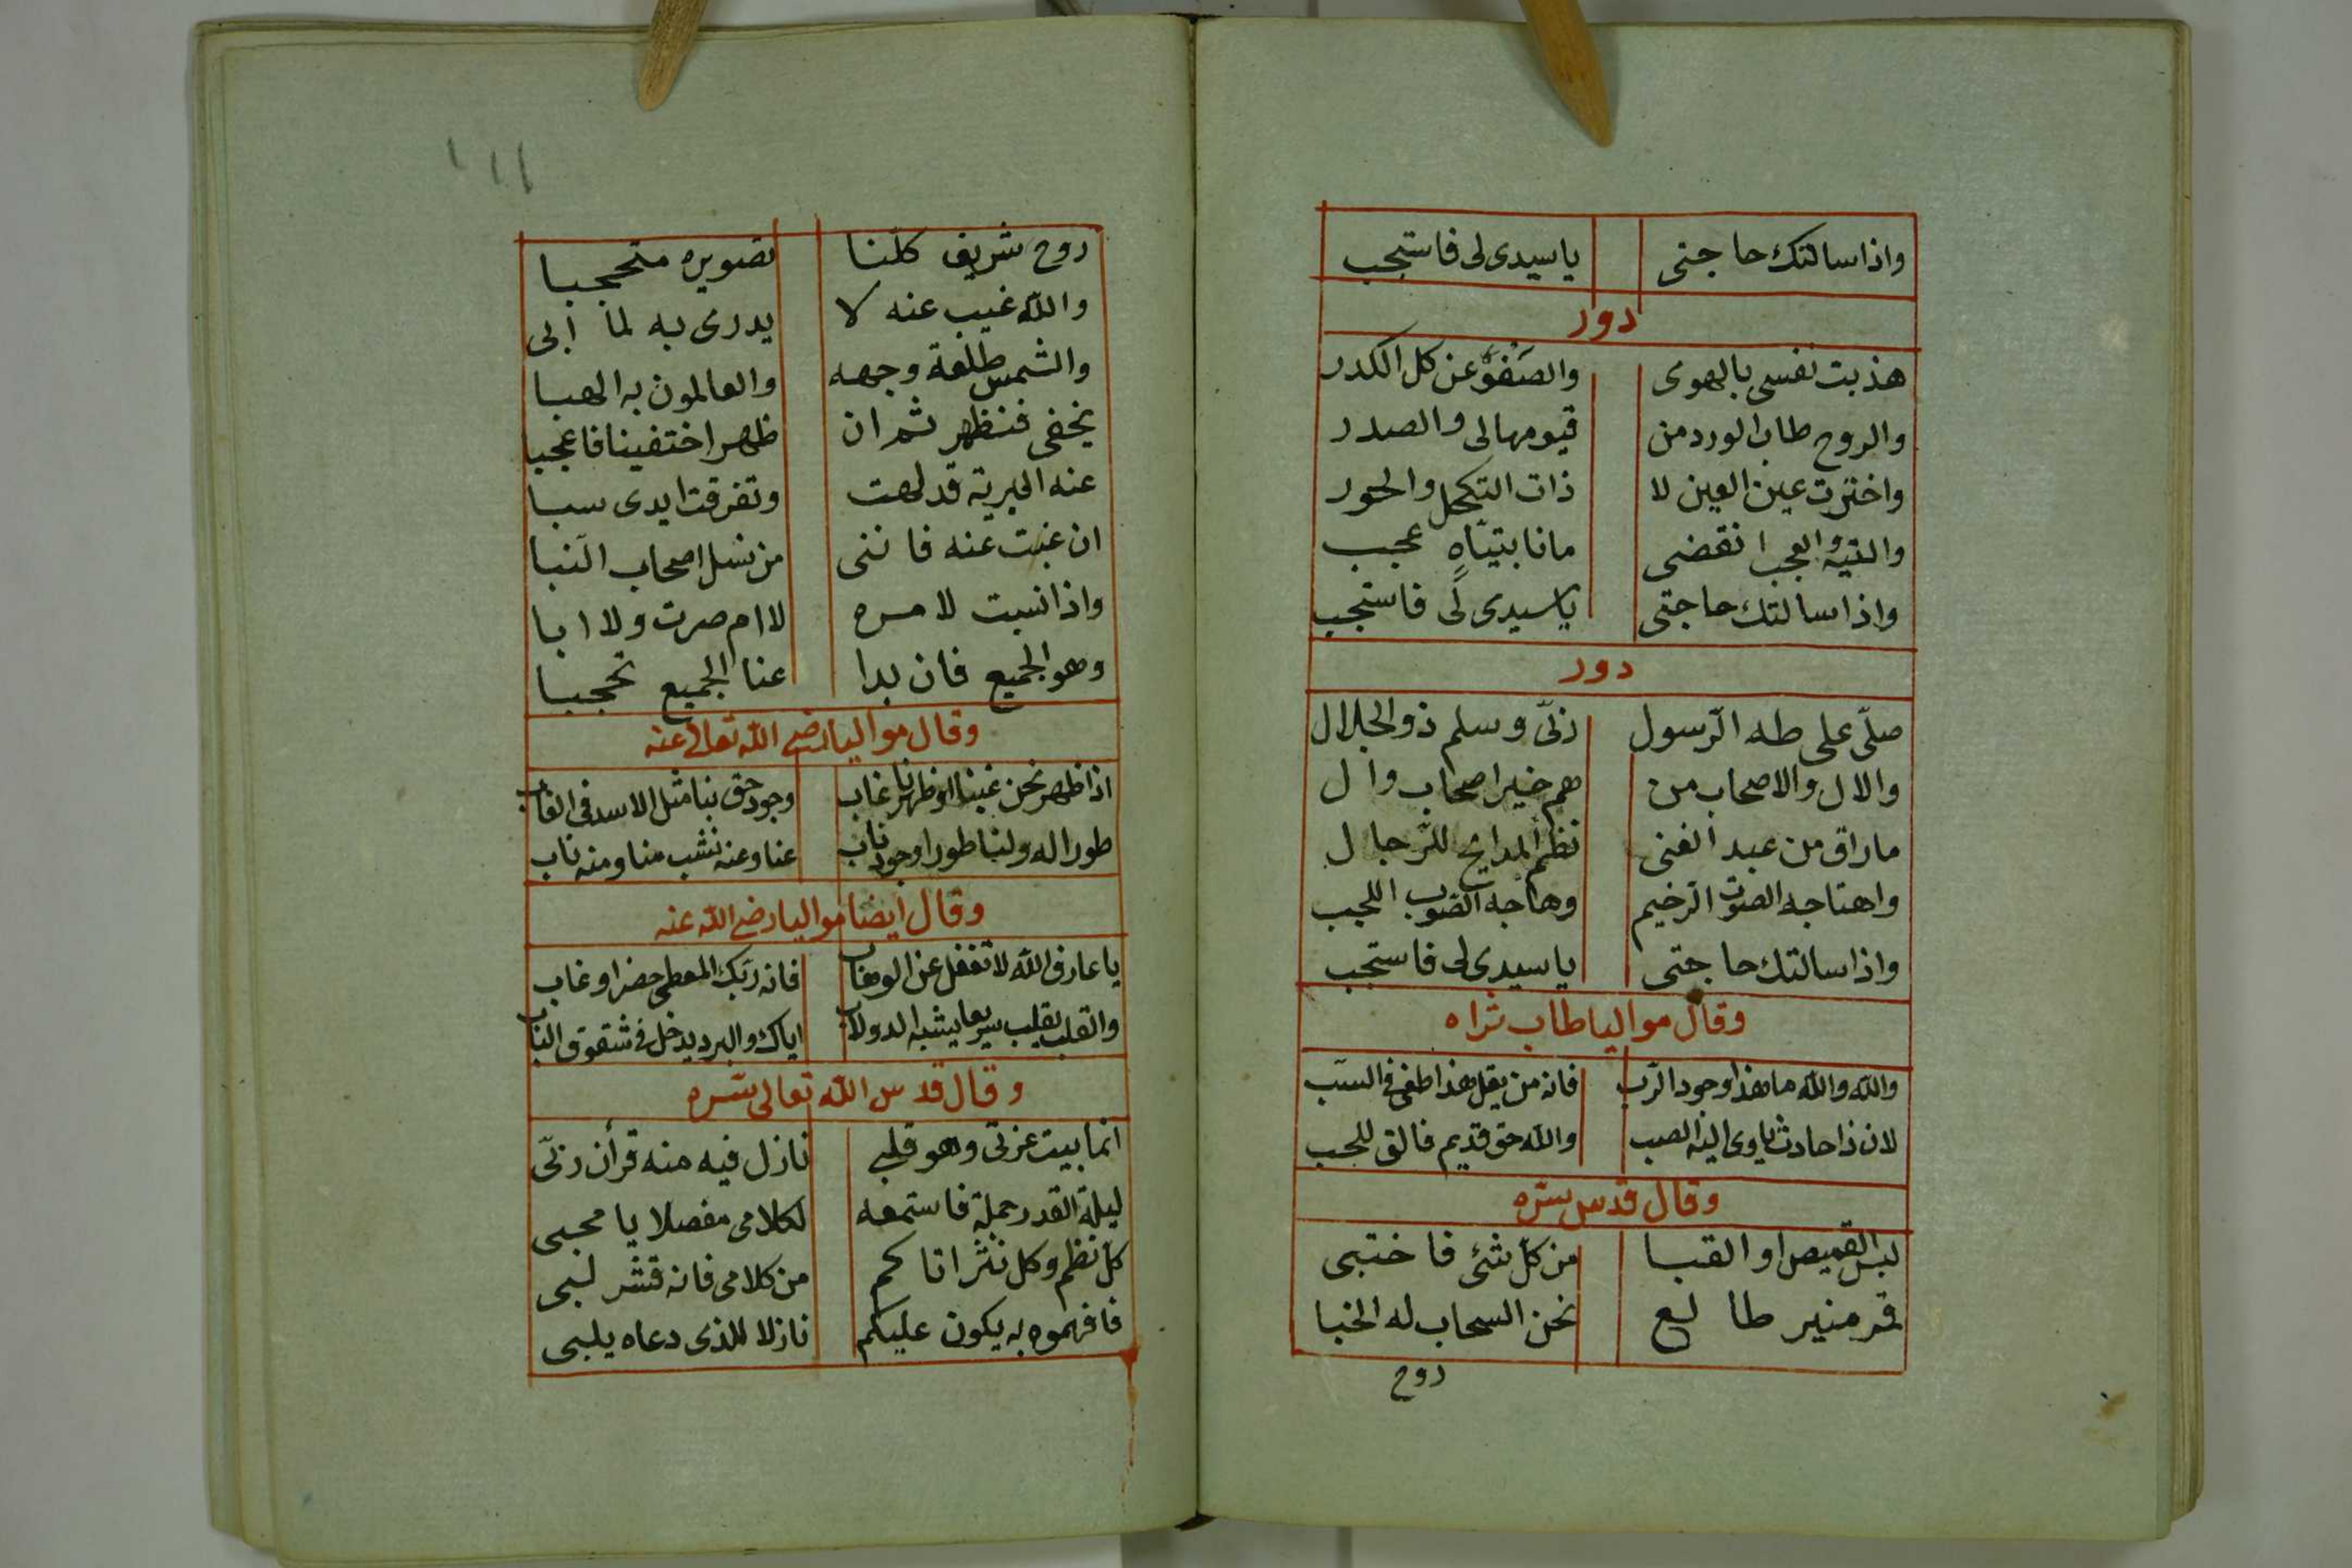 واذا سالتك حاجتى ياسيدى لى فاستجب
دور
هذبت نفسى بالهوى والصفو عن كل الكدر
والروح طاب الورد من قيومها لى والصدر
واخترت عين العين لا ذات التكحل والحور
والتيه والعجب انقضى مانا بتياه عجب
واذا سالتك حاجتى ياسيدى لى فاستجب
دور
صلى على طه الرسول ربى وسلم ذو الجلال
والال والاصحاب من هم خير اصحاب وال
ماراق من عبد الغنى نظم المدايح للرجال
واهتاجه الصوت الرخيم وهاجه الضرب اللجب
واذا سالتك حاجتى ياسيدى لى فاستجب
وقال مواليا طاب ثراه
والله والله ماهذا وجود الرب فانه من يقل هذا طغى فى السب
لان ذا حادث ياوى اليه الصب والله حق قديم فالق للحب
وقال قدس سره
لبس القميص او القبا من كل شئ فاختبى
قمر منير طالع نحن السحاب له الخبا
روح
١١١
روح شريف كلنا تصويره متحجبا
والله غيب عنه لا يدرى به لما ابى
والشمس طلعة وجهه والعالمون به الهبا
يخفى فنظهر ثم ان ظهر اختفينا فاعجبا
عنه البرية قد لهت وتفرقت ايدى سبا
ان غبت عنه فاننى من نسل اصحاب النبا
واذا نسبت لامره لا ام صرت ولا ابا
وهو الجميع فان بدا عنا الجميع تحجبا
وقال مواليا رضى الله تعالى عنه
اذا ظهر نحن غبنا او ظهرنا غاب وجود حق بنا مثل الاسد فى الغاب
طورا له ولنا طورا وجود ناب عنا وعنه نشب منا ومنه ناب
وقال ايضا مواليا رضى الله عنه
يا عارف الله لا تغفل عن الوهاب فانه ربك المعطى حضر او غاب
والقلب يقلب سريعا يشبه الدولاب اياك والبرد يدخل فى شقوق الباب
وقال قدس الله تعالى سره
انما بيت عزتى وهو قلبى نازل فيه منه قرأن ربى
ليلة القدر جملة فاستمعه لكلامى مفصلا يا محبى
كل نظم وكل نثر اتاكم من كلامى فانه قشر لبى
فافهموه به يكون عليكم نازلا للذى دعاه يلبى